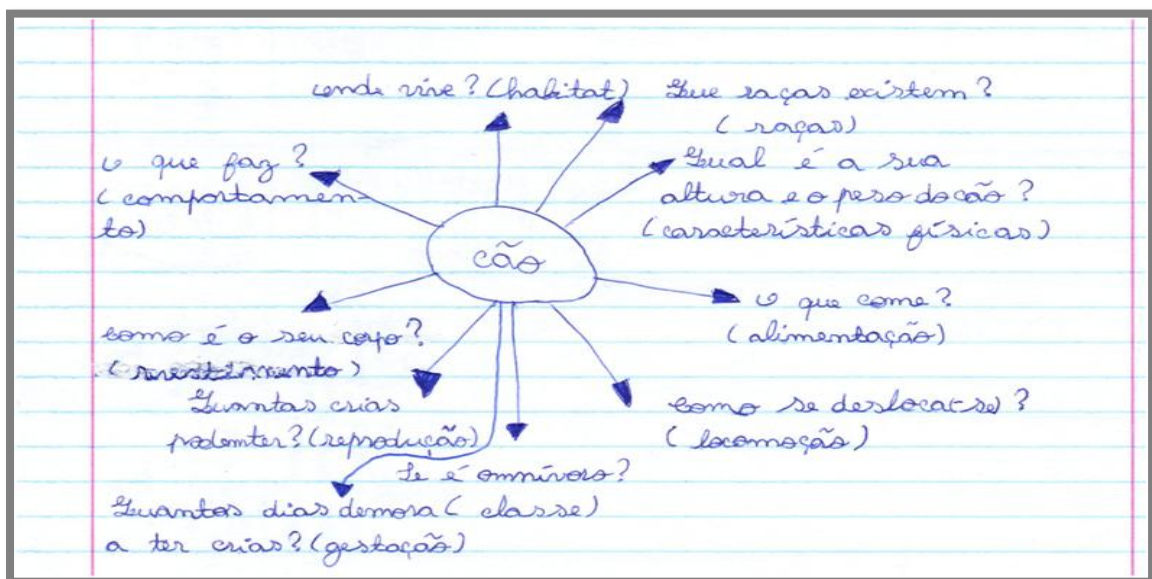 onde vive? (habitat)
Que raças existem?
(raças)
O que faz?
(comportamen-
to)
Qual é a sua
altura e o peso do cão?
(características físicas)
cão
O que come?
(alimentação)
como é o seu corpo?
(revestimento)
Quantas crias
podem ter? (reprodução)
como se deslocar(se)?
(locomoção)
Se é omnívoro?
(classe)
Quantos dias demora
a ter crias? (gestação)